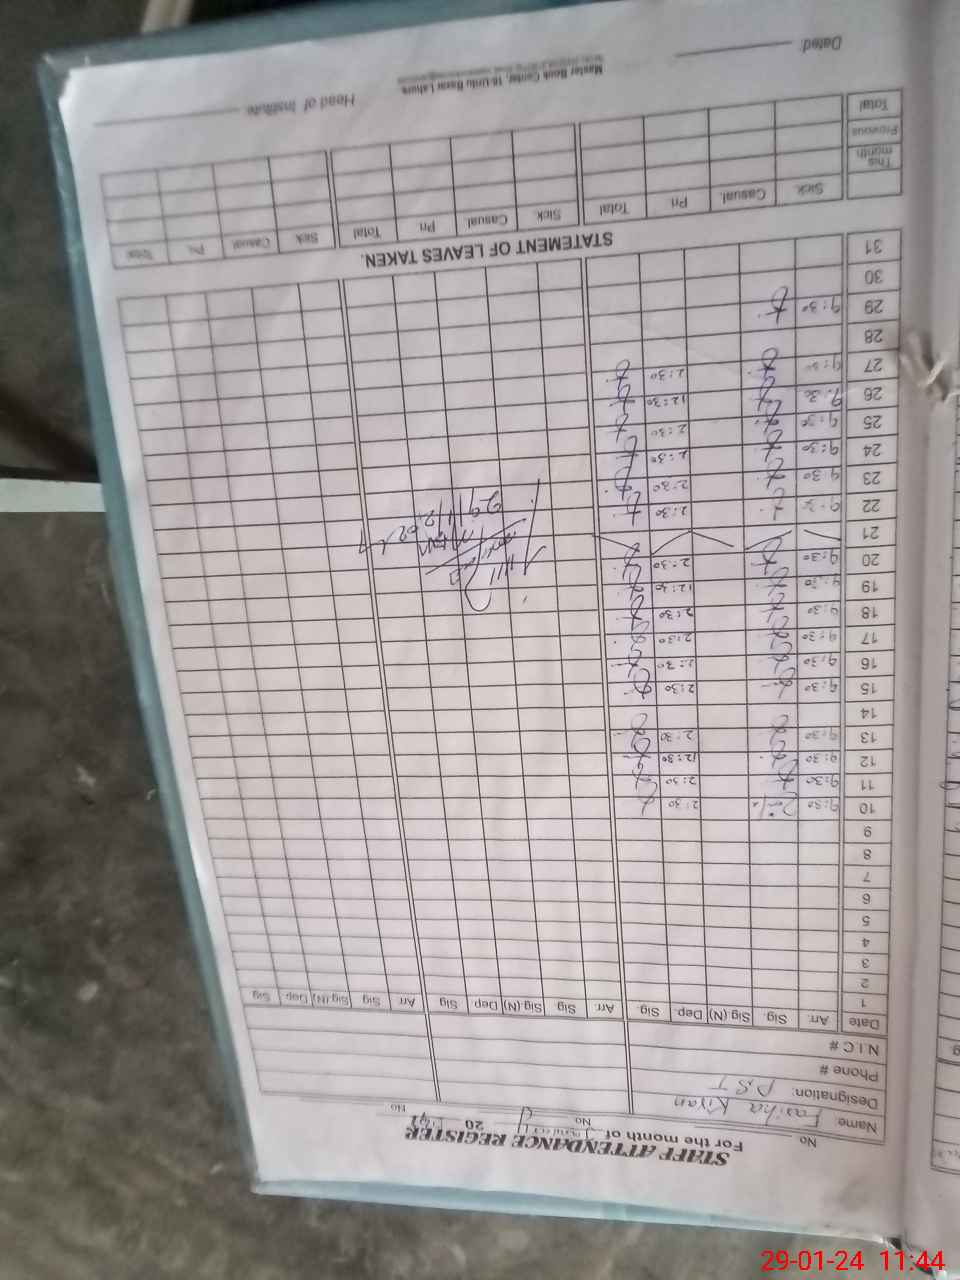 STAFF ATTENDANCE REGISTER
For the month of January 20
No No No
Name: Fasiha Kiran
Designation: P.S.T
Phone #
N.I.C #
Date Arr. Sig. Sig.(N) Dep. Sig. Arr. Sig Sig.(N) Dep Sig Arr Sig Sig.(N) Dep Sig
1
2
3
4
5
6
7
8
9
10 9:30 2:30
11 9:30 2:30
12 9:30 12:30
13 9:30 2:30
14
15 9:30 2:30
16 9:30 2:30
17 9:30 2:30
18 9:30 2:30
19 9:30 12:30
20 9:30 2:30
21
22 9:30 2:30
23 9:30 2:30
24 9:30 2:30
25 9:30 2:30
26 9:30 12:30
27 9:30 2:30
28
29 9:30
30
31
STATEMENT OF LEAVES TAKEN.
Sick Casual. Pri Total Sick Casual. Pri. Total Sick Casual Pri. Total
This month
Previous
Total
Head of Institute
Master Book Center, 16-Urdu Bazar Lahore
Dated:
29-01-24 11:44